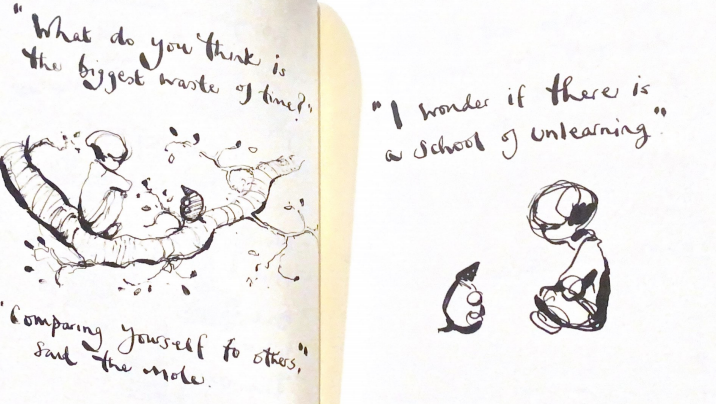 "What do you think is
the biggest waste of time?"
"Comparing yourself to others,"
said the mole.
"I wonder if there is
a school of unlearning".